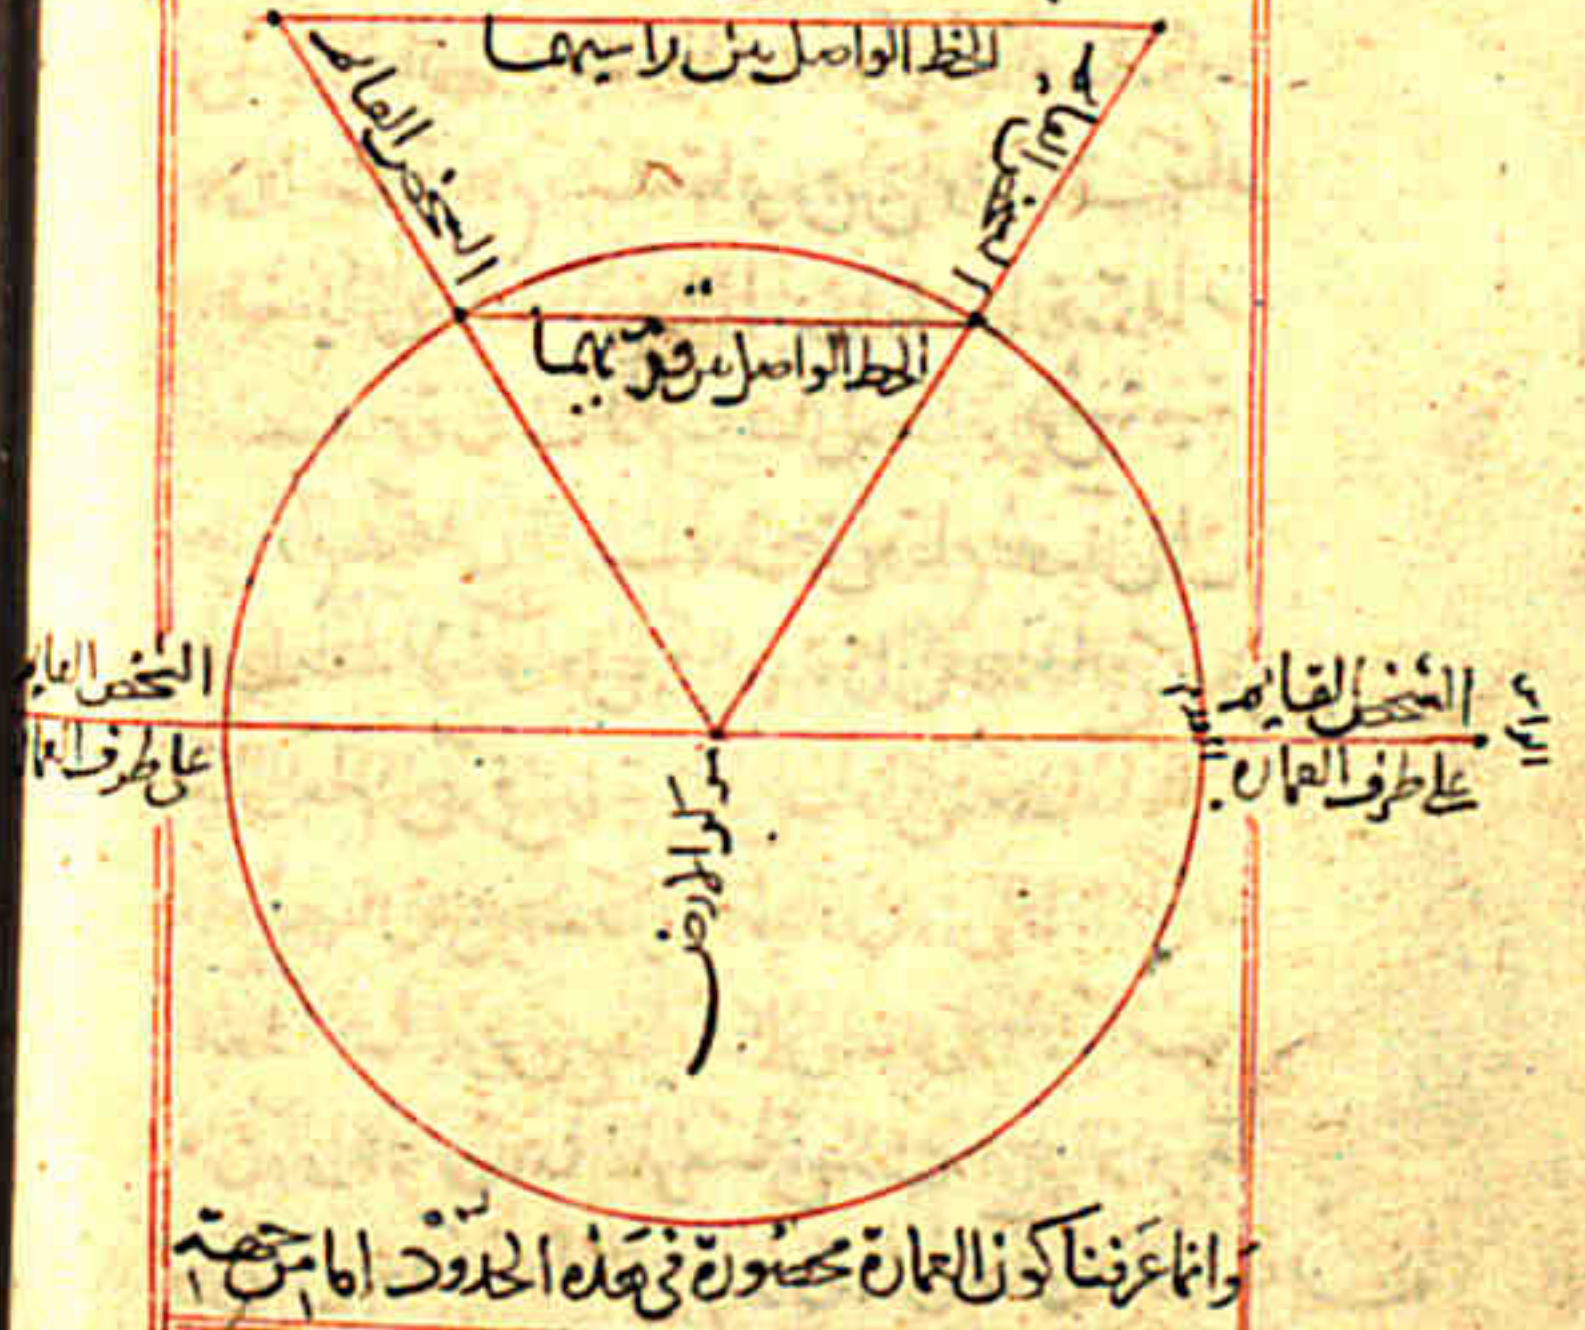 الخط الواصل بين راسيهما
الشخص القايم
الشخص القايم
الخط الواصل بين قدميهما
الشخص القايم
على طرف العمارة
الراس
القدم
الشخص القايم
على طرف العما
مركز الارض
وانما عرفنا كون العمارة محصورة في هذه الحدود اما من جهة